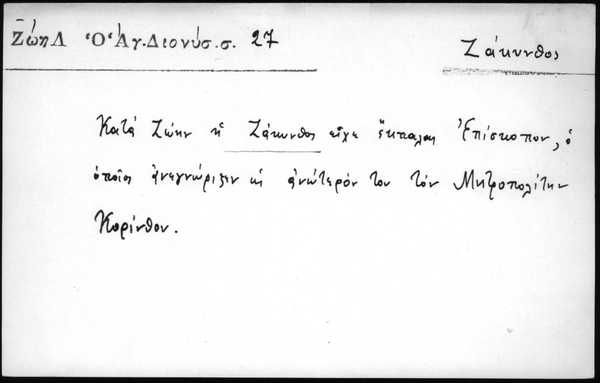 ΖώηΛ Ὁ Ἁγ. Διονύσ. σ. 27
Ζάκυνθος
Κατά Ζώην ἡ Ζάκυνθος εἶχε ἔκπαλαι Ἐπίσκοπον, ὁ
ὁποῖος ἀνεγνώριζεν ὡς ἀνώτερόν του τόν Μητροπολίτην
Κορίνθου.